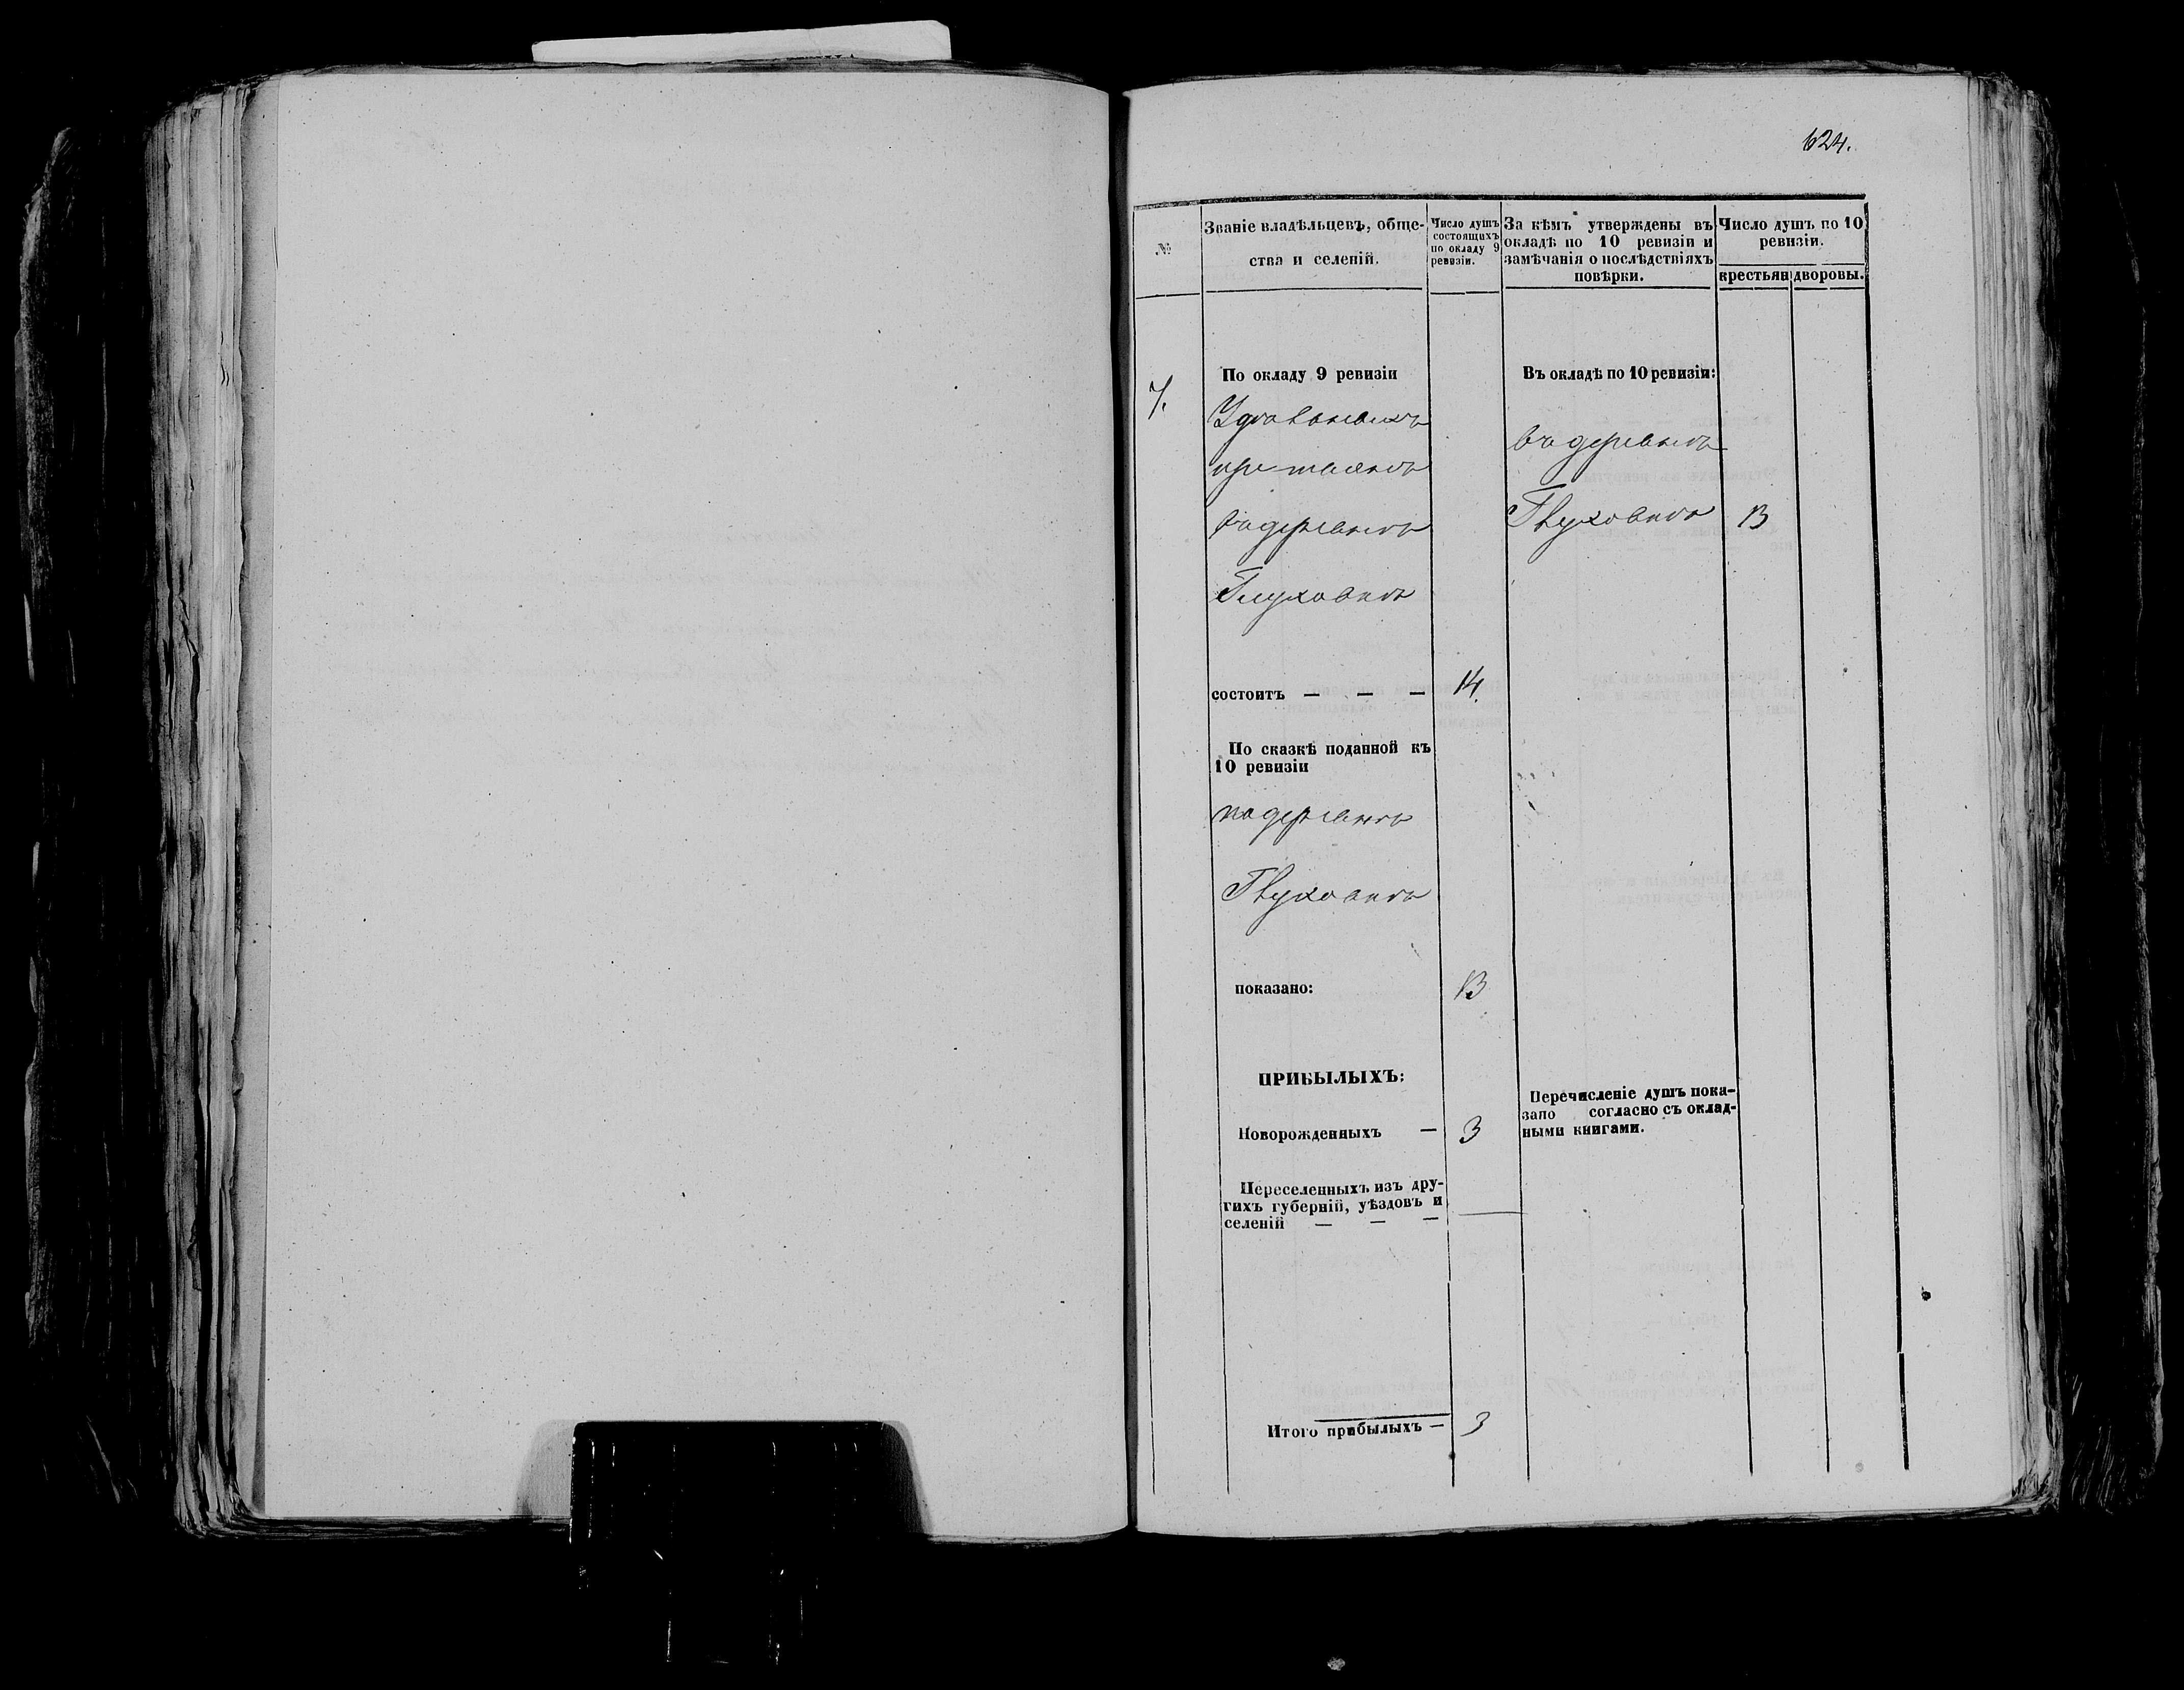 624.
№
Званіе владѣльцевъ, обще-
ства и селеній.
Число душъ
состоящихъ
по окладу 9
ревизіи.
За кѣмъ утверждены въ
окладѣ по 10 ревизіи и
замѣчанія о послѣдствіяхъ
повѣрки.
Число душъ по 10
ревизіи.
крестьян
дворовы.
7.
По окладу 9 ревизіи
Удѣльныхъ
крестьянъ
въ деревнѣ
Глуховкѣ
состоитъ — — —
14.
По сказкѣ поданной къ
10 ревизіи
въ деревнѣ
Глуховкѣ
показано:
13
ПРИБЫЛЫХЪ:
Новорожденныхъ —
3
Переселенныхъ изъ дру-
гихъ губерній, уѣздовъ и
селеній — — —
Итого прибылыхъ —
3
Въ окладѣ по 10 ревизіи:
въ деревнѣ
Глуховкѣ
13
Перечисленіе душъ пока-
зано согласно съ оклад-
ными книгами.